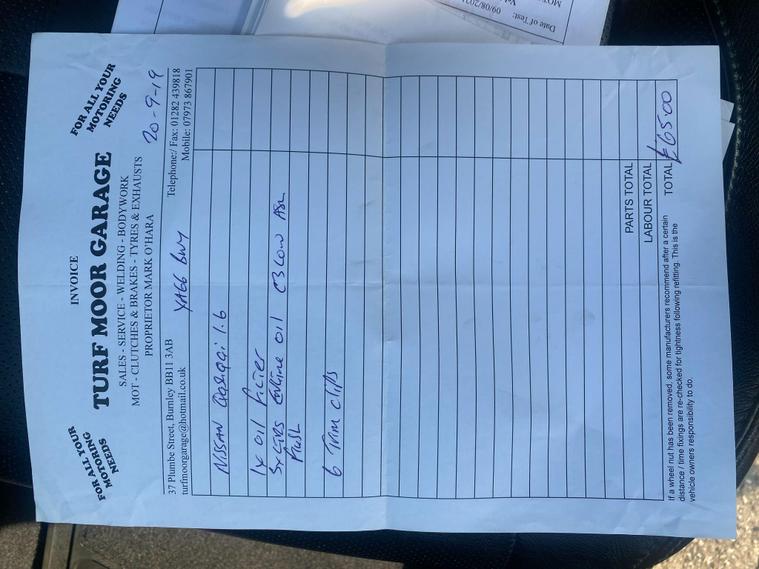 INVOICE
FOR ALL YOUR
MOTORING
NEEDS
TURF MOOR GARAGE
FOR ALL YOUR
MOTORING
NEEDS
SALES - SERVICE - WELDING - BODYWORK
MOT - CLUTCHES & BRAKES - TYRES & EXHAUSTS
PROPRIETOR MARK O'HARA
20-9-19
37 Plumbe Street, Burnley BB11 3AB
Telephone:/ Fax: 01282 439818
turfmoorgarage@hotmail.co.uk
YA66
Mobile: 07973 867901
NISSAN 1.6
1x oil filter
5x engine oil C3 Low ASH
flush
6 Trim clips
PARTS TOTAL
LABOUR TOTAL
TOTAL £65.00
If a wheel nut has been removed, some manufacturers recommend after a certain
distance / time fixings are re-checked for tightness following refitting. This is the
vehicle owners responsibility to do.
Date of Test:
MOT